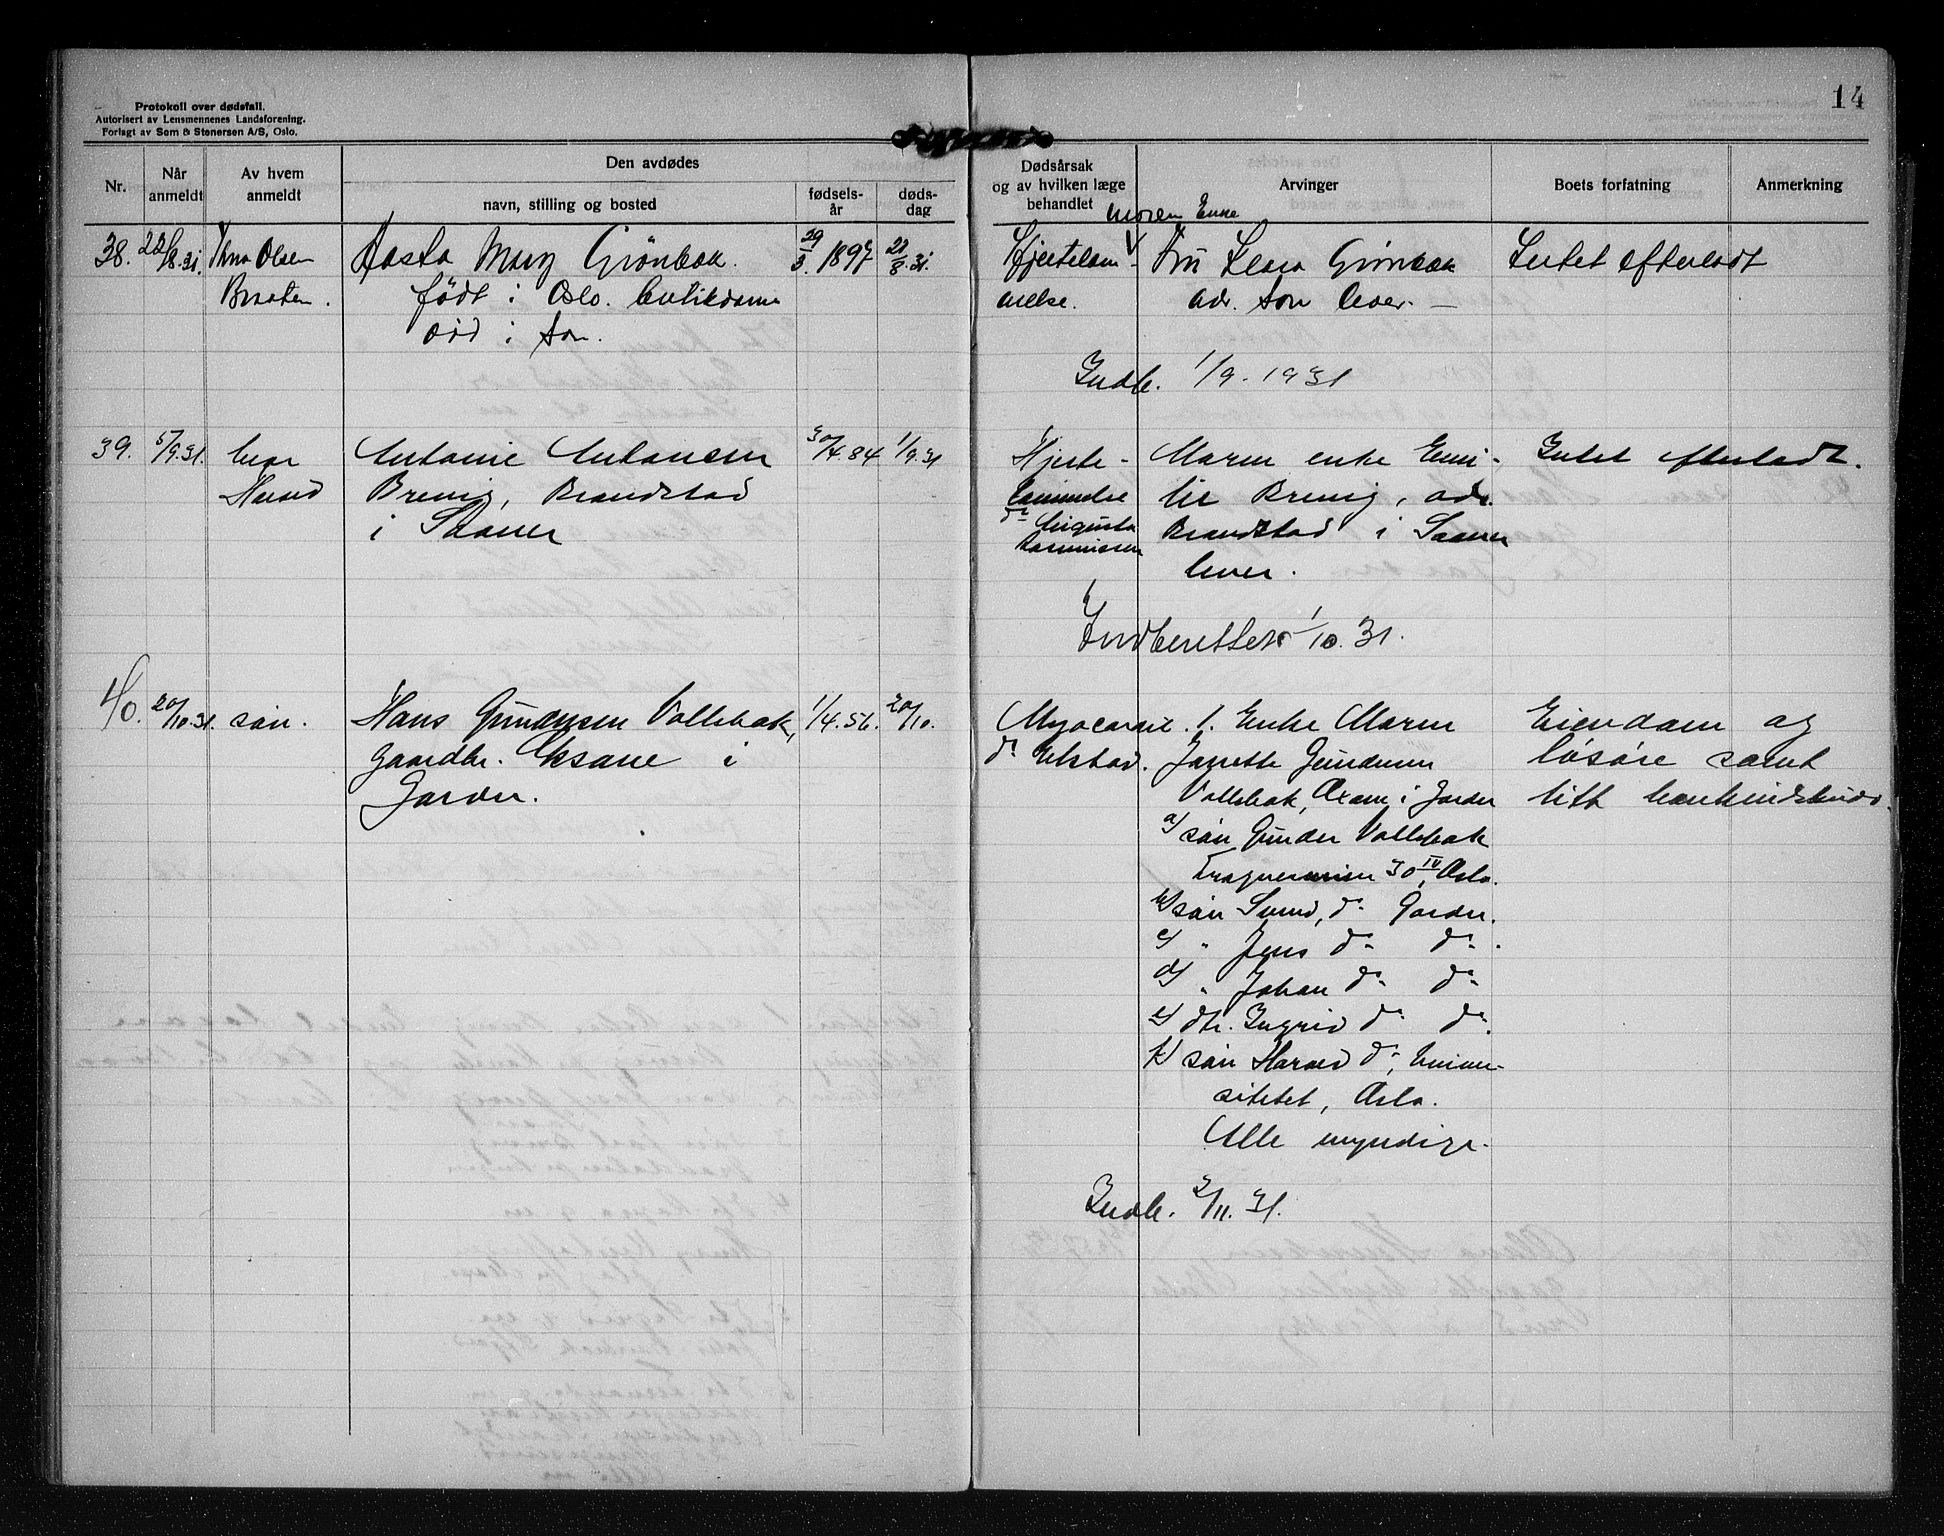 Protokoll over dødsfall.
Autorisert av Lensmennenes Landsforening.
Forlagt av Sem & Stenersen A/S, Oslo.
14
Nr.
Når anmeldt
Av hvem anmeldt
Den avdødes
navn, stilling og bosted
fødsels-år
døds-dag
Dødsårsak
og av hvilken læge
behandlet
Arvinger
Boets forfatning
Anmerkning
38. 22/8.31. Olsen Braaten.
Aasta Mary Grönbæk.
født i Oslo. butikdame
död i Son.
29/3 1897
22/8.31.
Hjertelam
melse.
moren Enke
Fru Grönbæk
adr. Son lever. —
Intet efterladt
Indb. 1/9. 1931
39. 5/9.31.
Antonie Antonsen
Brevig, Brandstad
i Saaner
30/4.84
1/9.31
Hjerte-
lammelse
dr. Augusta
Rasmussen
Moren enke Emi-
lie Brevig, adr.
Brandstad i Saaner
lever.
Intet efterladt.
Indberettet 1/10.31.
40. 20/10.31. søn.
Hans Gundersen Vollebæk,
gaardbr. Oksane i
Garder.
1/4.56.
20/10.
Myocardit.
dr. Elstad.
1. Enke Maren
Janette Gundersen
Vollebæk, Oxane i Garder
a) søn Gunder Vollebæk
Frognerveien 30 IV, Oslo.
b) søn Svend, do. Garder.
c) " Jens do. do.
d) " Johan do. do.
e) dtr. Ingrid do. do.
f) søn Harald do., Univer-
sitetet, Oslo.
Alle myndige.
Eiendom og
løsøre samt
litt bankindskudd.
Indb. 2/11.31.